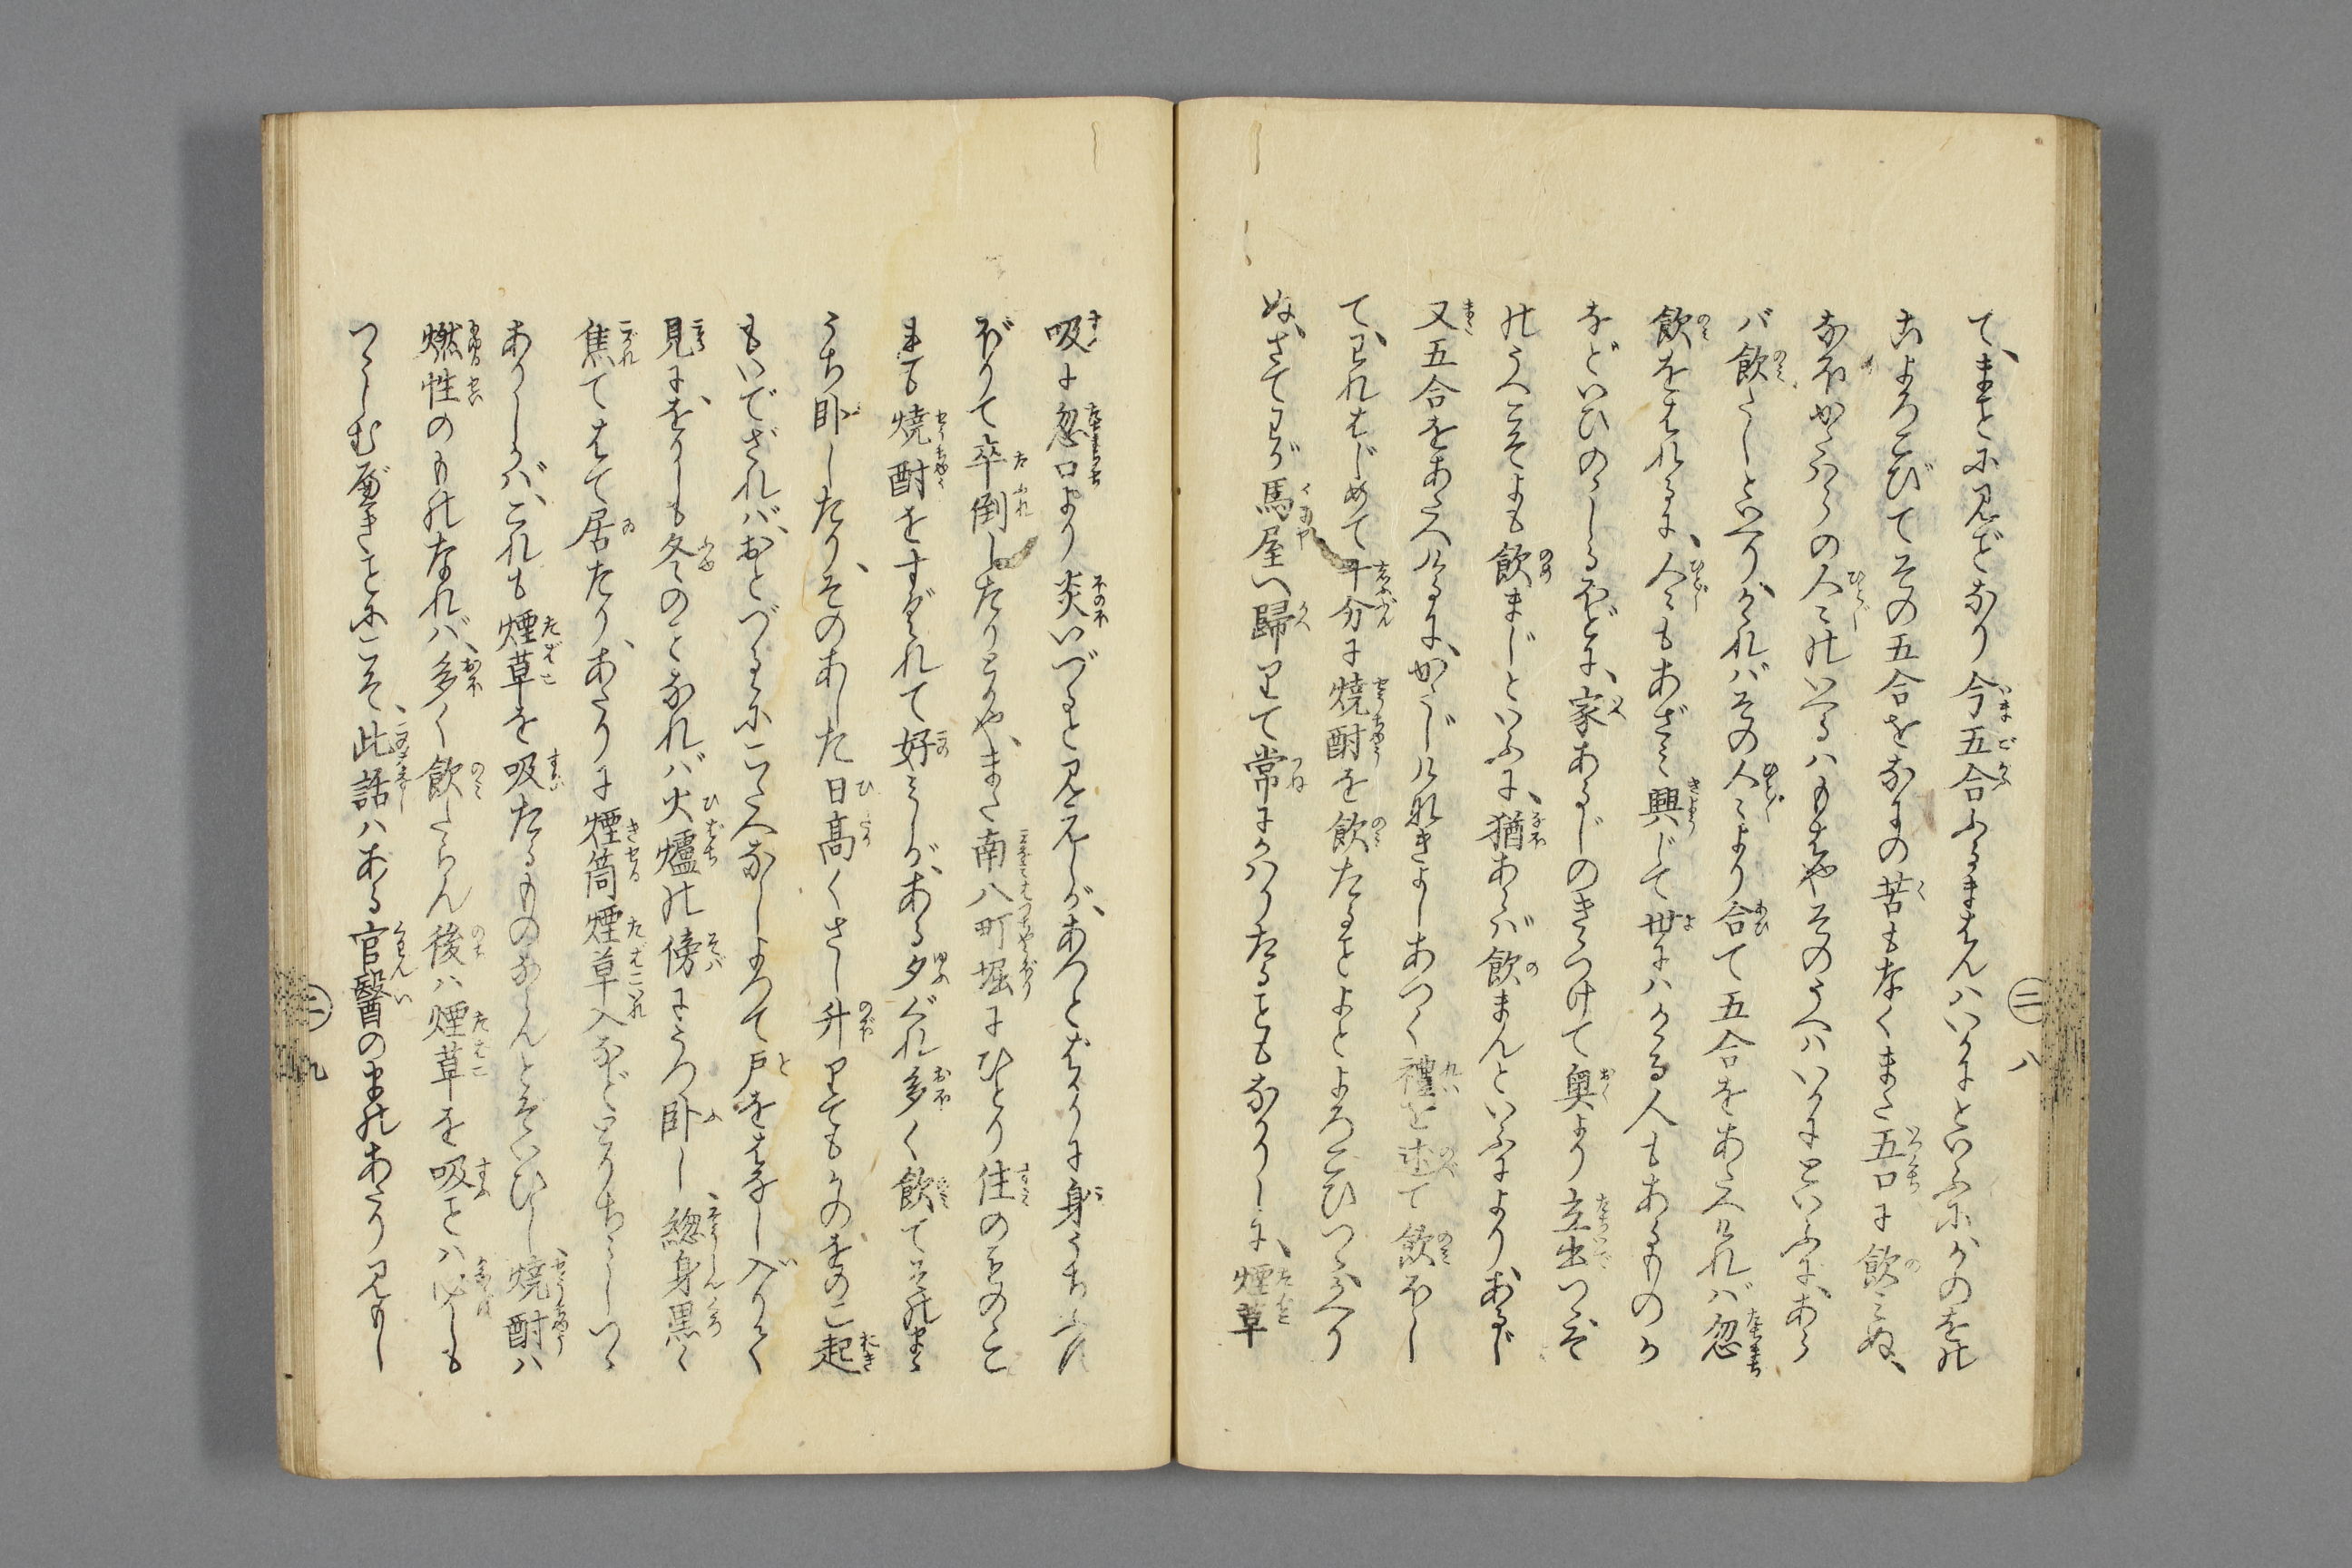 て、まことに見ごとなり今五合ふるまはんハいかにといふにかのをの
こよろこびてその五合をなにの苦もなくまた五口に飲ミぬ、
なほかたへの人〻のいへるハもはやそのうへハいかにといふに、あら
バ飲たしといへりけれバその人〻より合て五合をあたへけれバ忽
飲をはれるに、人〻もあざミ興じて世にハかゝる人もあるものか
などいひのゝしるほどに、家あるじのきゝつけて奥より立出いつぞ
のうへこそよも飲まじといふに、猶あらバ飲まんといふによりあるじ
又五合をあたへけるに、かたじけなきよしあつく禮を述て飲ほし
て、われはじめて十分に焼酎を飲たることよとよろこびつゝかへり
ぬ、さてわが馬屋へ歸りて常にかハりたることもなかりしに、煙草
吸に忽口より炎いづると見えしが、あつとばかりに身うちふす
ぼりて卒倒したりとぞや、また南八町堀にひとり住のをのこ
是も焼酎をすぐれて好ミしが、ある夕ぐれ多く飲てそのまゝ
うち臥したり、そのあした日高くさし升りてもかのをのこ起
もいでざれバ、おとづるゝにこたへなしよつて戸をはなし入りて
見るに、をりしも冬のことなれバ火爐の傍にうち臥し、惣身黒く
焦てはて居たり、あたりに煙筒煙草入などとりちらしいつゝ
ありしかバ、これも煙草を吸たるものならんとぞいひし、焼酎ハ
燃性のものなれバ、多く飲たらん後ハ煙草を吸ことハ必しも
つゝしむべきことにこそ、此話ハある官醫のまのあたり見もし
二 八
二 九